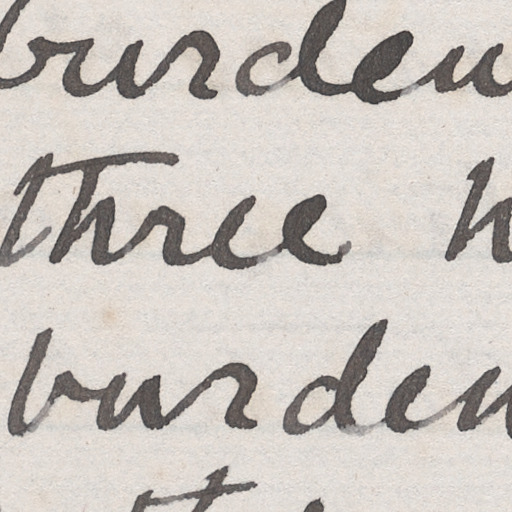 burden
three h
burden